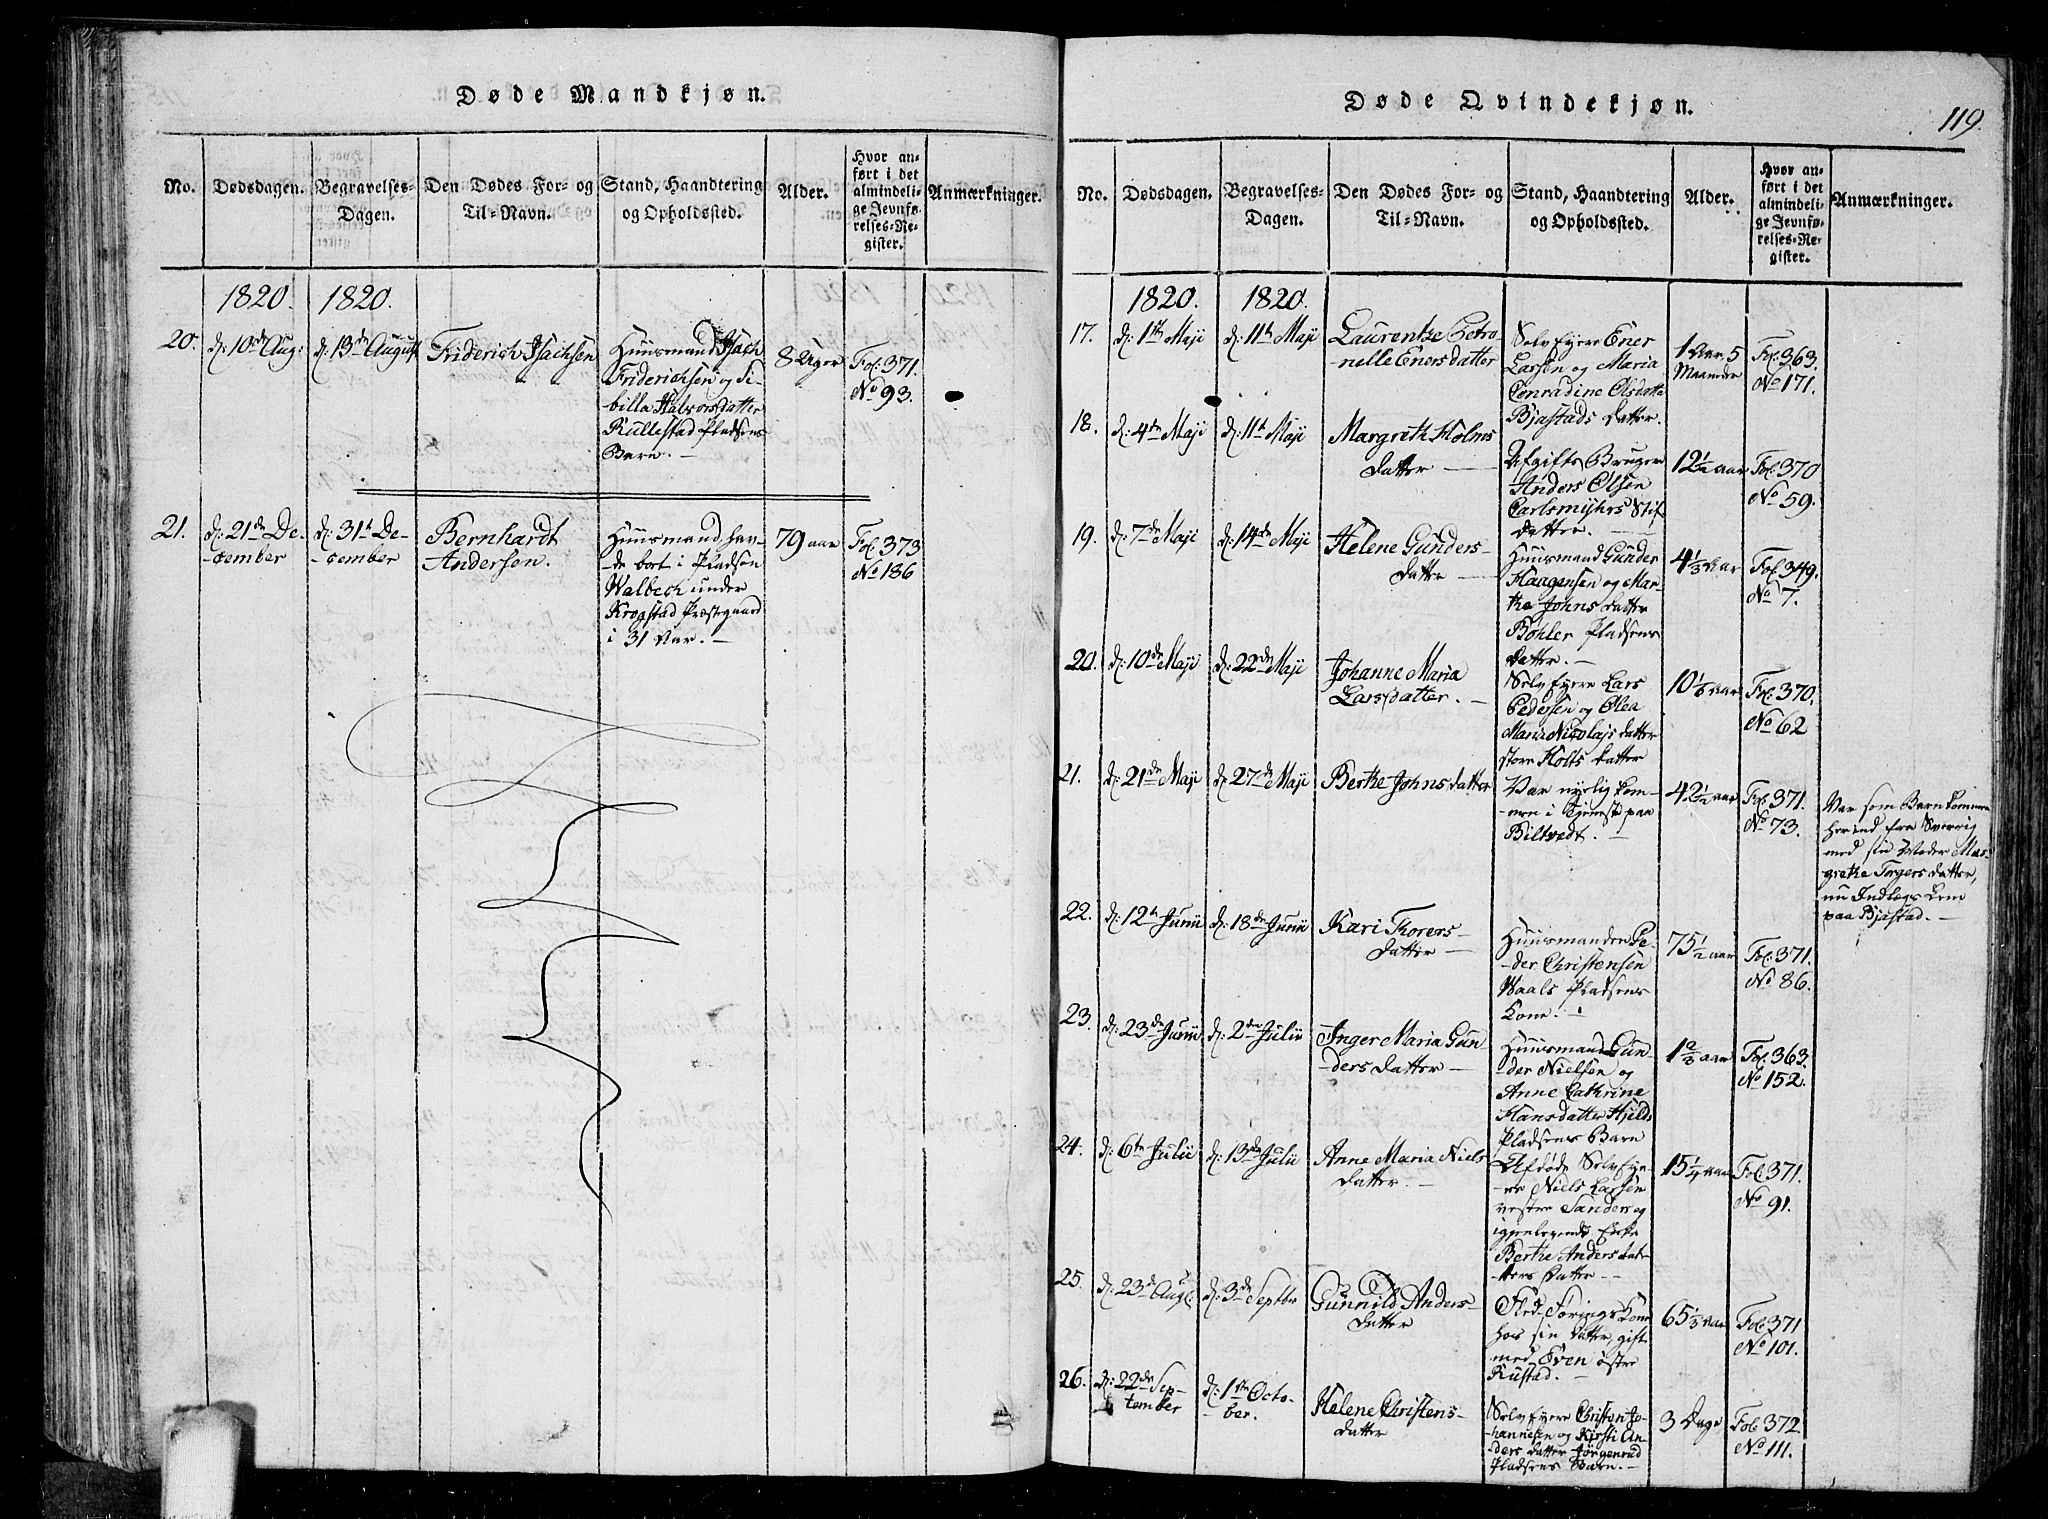 Døde Mandkjøn.
No.
Dødsdagen.
Begravelses-
Dagen.
Den Dødes For- og
Til-Navn.
Stand, Haandtering
og Opholdssted.
Alder.
Hvor an-
ført i det
almindeli-
ge Jevnfø-
relses-Re-
gister.
Anmærkninger.
1820.
1820.
20.
d: 10de Aug:
d: 13de August
Friderich Isachsen
Huusmand Isach
Friderichsen og Si-
billa Halvorsdatter
Kullestad Pladsens
Barn. —
8 Uger
Fol: 371.
No 93.
21.
d: 21de De-
cember
d: 31te De-
cember
Bernhardt
Andersen.
Huusmand, hav-
de boet i Pladsen
Walbech under
Krogstad Præstegaard
i 31 Aar. —
79 aar
Fol: 373
No 186
Døde Qvindekjøn.
119.
No.
Dødsdagen.
Begravelses-
Dagen.
Den Dødes For- og
Til-Navn.
Stand, Haandtering
og Opholdssted.
Alder.
Hvor an-
ført i det
almindeli-
ge Jevnfø-
relses-Re-
gister.
Anmærkninger.
1820.
1820.
17.
d: 1ste Maji
d: 11te Maji
Laurentze Petro-
nelle Enersdatter
Selvejere Ener
Larsen og Maria
Conradine Olsdatter
Bjastads Datter.
1 Aar 5
Maaneder
Fol: 363.
No 171.
18.
d: 4de Maji
d: 11te Maji
Margreth Holms
Datter —
Afgifts Bruger
Anders Olsen
Carlsmyhrs Stif
Datter. —
12 1/2 aar
Fol: 370
No 59.
19.
d: 7de Maji
d: 14de Maji
Helene Gunders-
Datter —
Huusmand Gunder
Haagensen og Mar-
the Johns Datter
Bøhler Pladsens
Datter. —
4 1/3 Aar
Fol: 349.
No 7.
20.
d: 10de Maji
d: 22de Maji
Johanne Maria
Larsdatter. —
Selvejere Lars
Pedersen og Olea
Maria Nicolajs datter
store Holts Datter
10 1/3 aar
Fol: 370.
No 62
21.
d: 21de Maji
d: 27de Maji
Berthe Johnsdatter
Var nyelig kom-
men i Tjeneste paa
Biltvedt. —
42 1/2 aar
Fol: 371.
No 73.
Var som Barn kommen
her ind fra Sverrig
med sin Moder Mar-
grethe Torgers datter,
nu Indlægs Lem
paa Bjastad. —
22.
d: 12te Junii
d: 18de Junii
Kari Thorers-
Datter —
Huusmanden Pe-
der Christensen
Waals Pladsens
Kone. —
75 1/2 aar
Fol: 371.
No 86.
23.
d: 23de Junii
d: 2den Julii
Inger Maria Gun-
dersdatter —
Huusmand Gun-
der Nielsen og
Anne Cathrine
Hansdatter Hjelds
Pladsens Barn
1 2/3 aar
Fol: 363.
No 152.
24.
d: 6te Julii
d: 13de Julii
Anne Maria Niels
Datter. —
Afdøde Selvejer-
re Niels Larsen
vestre Sander og
igjenlevende Enke
Berthe Anders dat-
ters Datter —
15 1/4 aar
Fol: 371.
No 91.
25.
d: 23de Aug:
d: 3de Septbr
Gunnild Anders-
Datter
Fled-Førings Kone
hos sin datter, gift
med Even østre
Rustad. —
65 1/3 aar
Fol: 371
No 101.
26.
d: 22de Sep-
tember
d: 1ste Octo-
ber.
Helene Christens-
datter
Selvejere Christen Jo-
hannesen og Kirsti An-
ders datter Jørgenrud
Pladsens Barn. —
3 Dage
Fol: 372.
No 111.